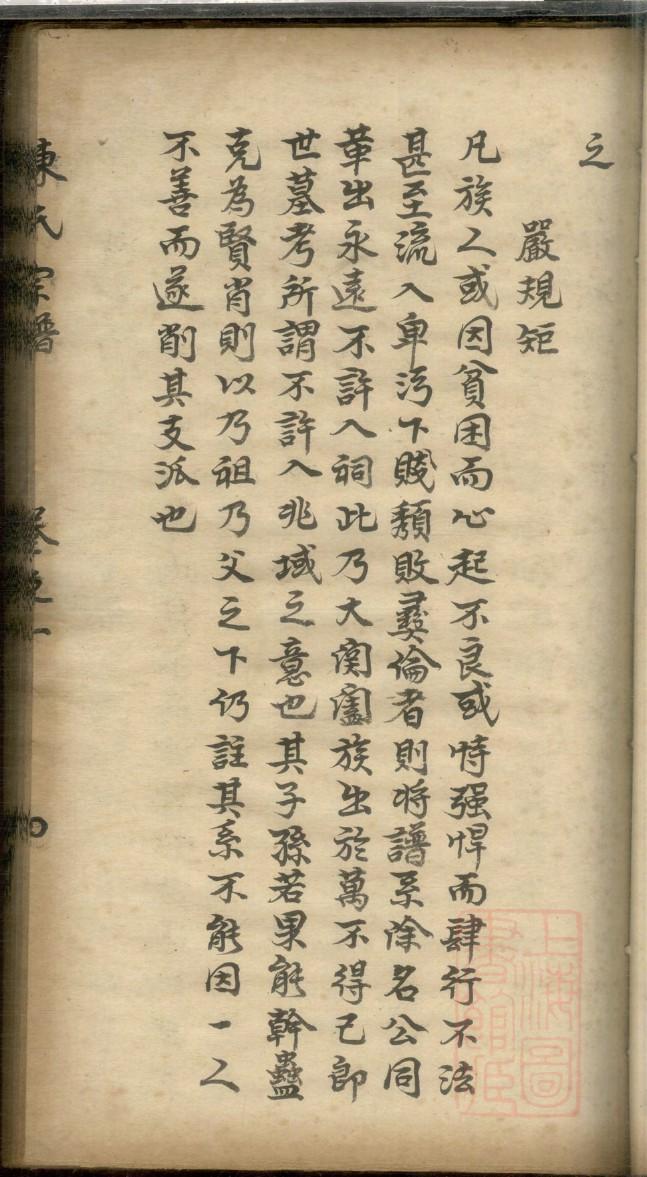 之
嚴規矩
凡族人或因貧困而心起不良或恃强悍而肆行不法
甚至流入卑污下賤頽敗彞倫者則將譜系除名公同
革出永遠不許入祠此乃大関闔族出於萬不得已即
世墓考所謂不許入兆域之意也其子孫若果能幹蠱
克為賢肖則以乃祖乃父之下仍註其系不能因一人
不善而遂削其支派也
陳氏宗譜 卷之一
上海圖書館藏